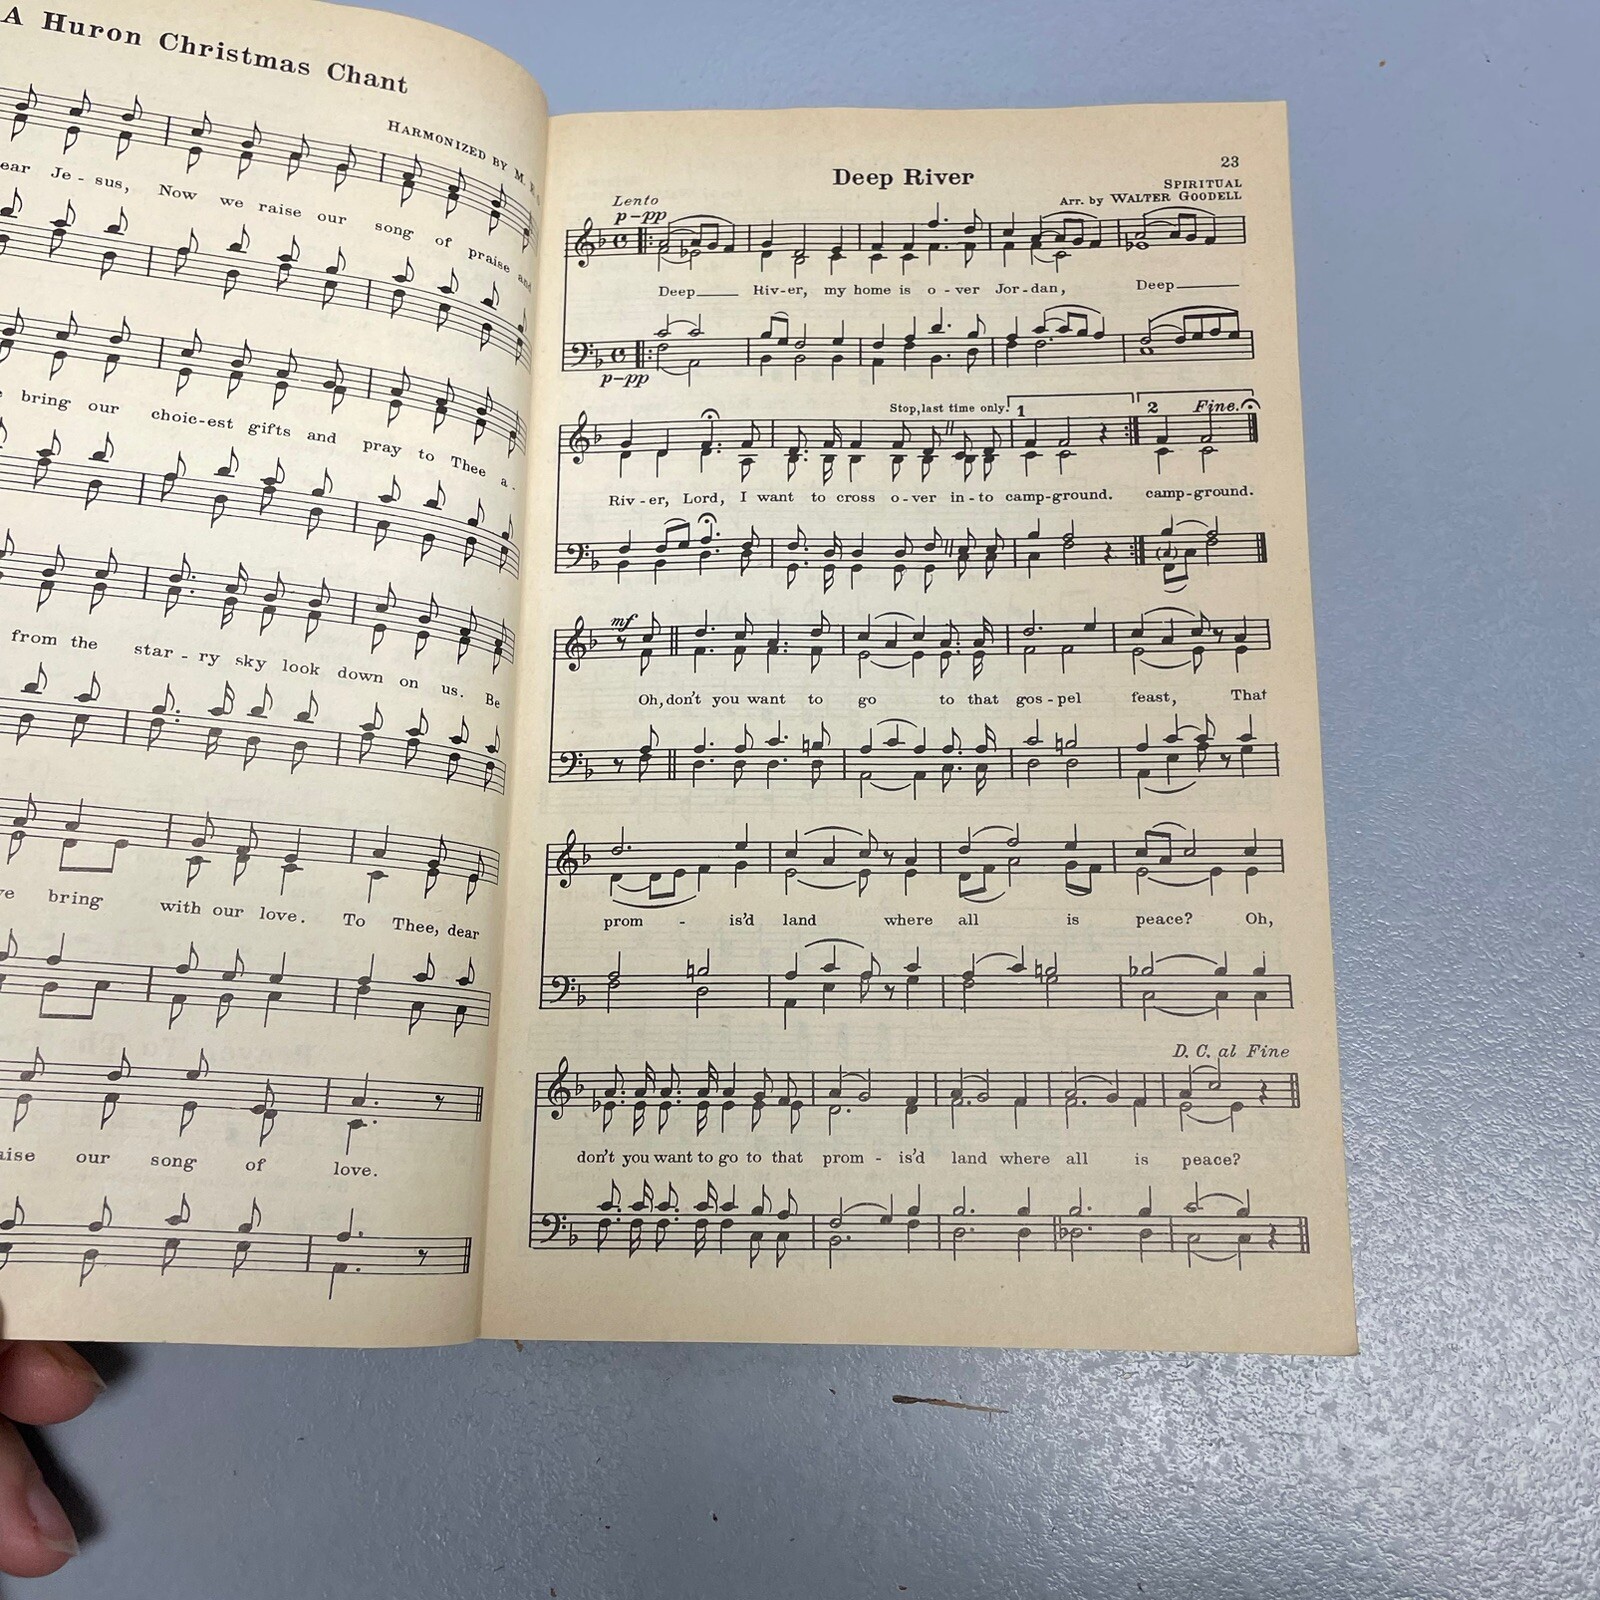 A Huron Christmas Chant
HARMONIZED BY M.
Je - sus, Now we raise our song of praise and
bring our choic-est gifts and pray to Thee a -
from the star - ry sky look down on us. Be
bring with our love. To Thee, dear
our song of love.
23
Deep River
SPIRITUAL
Arr. by WALTER GOODELL
Lento
p-pp
Deep Riv-er, my home is o - ver Jor-dan, Deep
p-pp
Stop, last time only! 1 2 Fine.
Riv - er, Lord, I want to cross o - ver in - to camp-ground. camp-ground.
mf
Oh, don't you want to go to that gos - pel feast, That
prom - is'd land where all is peace? Oh,
D. C. al Fine
don't you want to go to that prom - is'd land where all is peace?